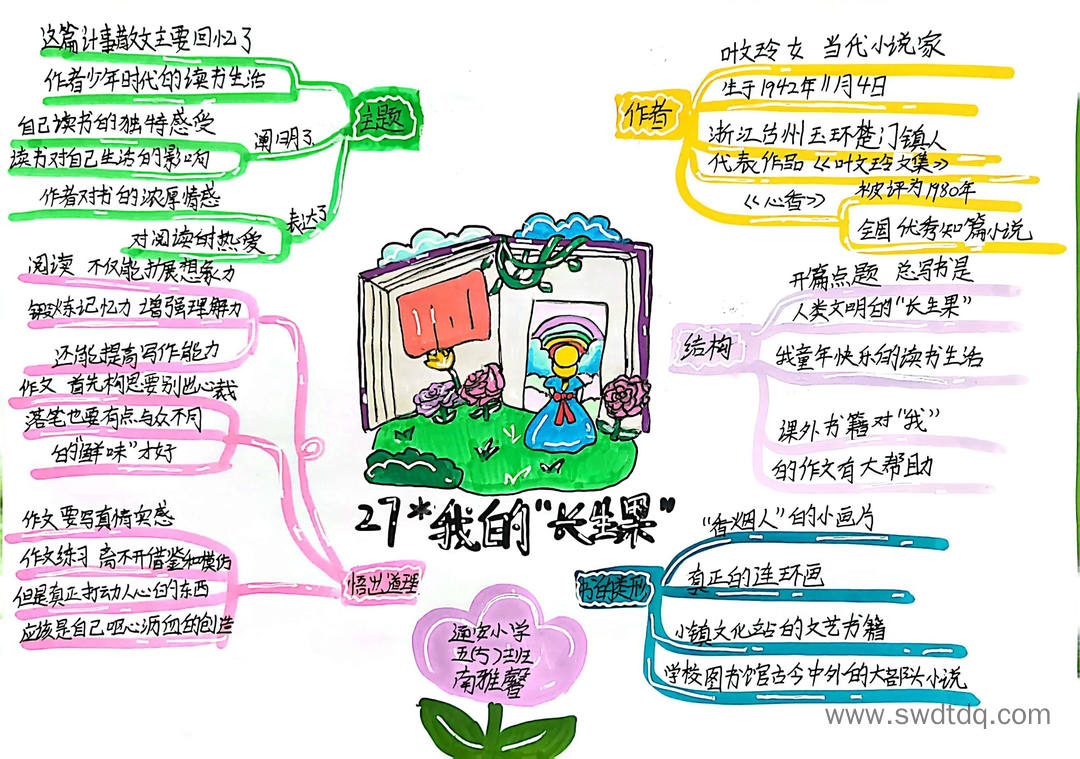 这篇计事散文主要回忆了
作者少年时代的读书生活
自己读书的独特感受
阐明了
读书对自己生活的影响
作者对书的浓厚情感
表达了
对阅读的热爱
主题
阅读 不仅能扩展想象力
锻炼记忆力 增强理解力
还能提高写作能力
作文 首先构思要别出心裁
落笔也要有点与众不同
的"鲜味"才好
作文要写真情实感
作文练习 离不开借鉴和模仿
但是真正打动人心的东西
应该是自己呕心沥血的创造
悟出道理
27*我的"长生果"
通安小学
五(5)班
南雅馨
作者
叶文玲 女 当代小说家
生于1942年11月4日
浙江台州玉环楚门镇人
代表作品《叶文玲文集》
《心香》
被评为1980年
全国优秀短篇小说
结构
开篇点题 总写书是
人类文明的"长生果"
我童年快乐的读书生活
课外书籍对"我"
的作文有大帮助
书的类形
"香烟人"的小画片
真正的连环画
小镇文化站的文艺书籍
学校图书馆古今中外的大部头小说
www.swdtdq.com